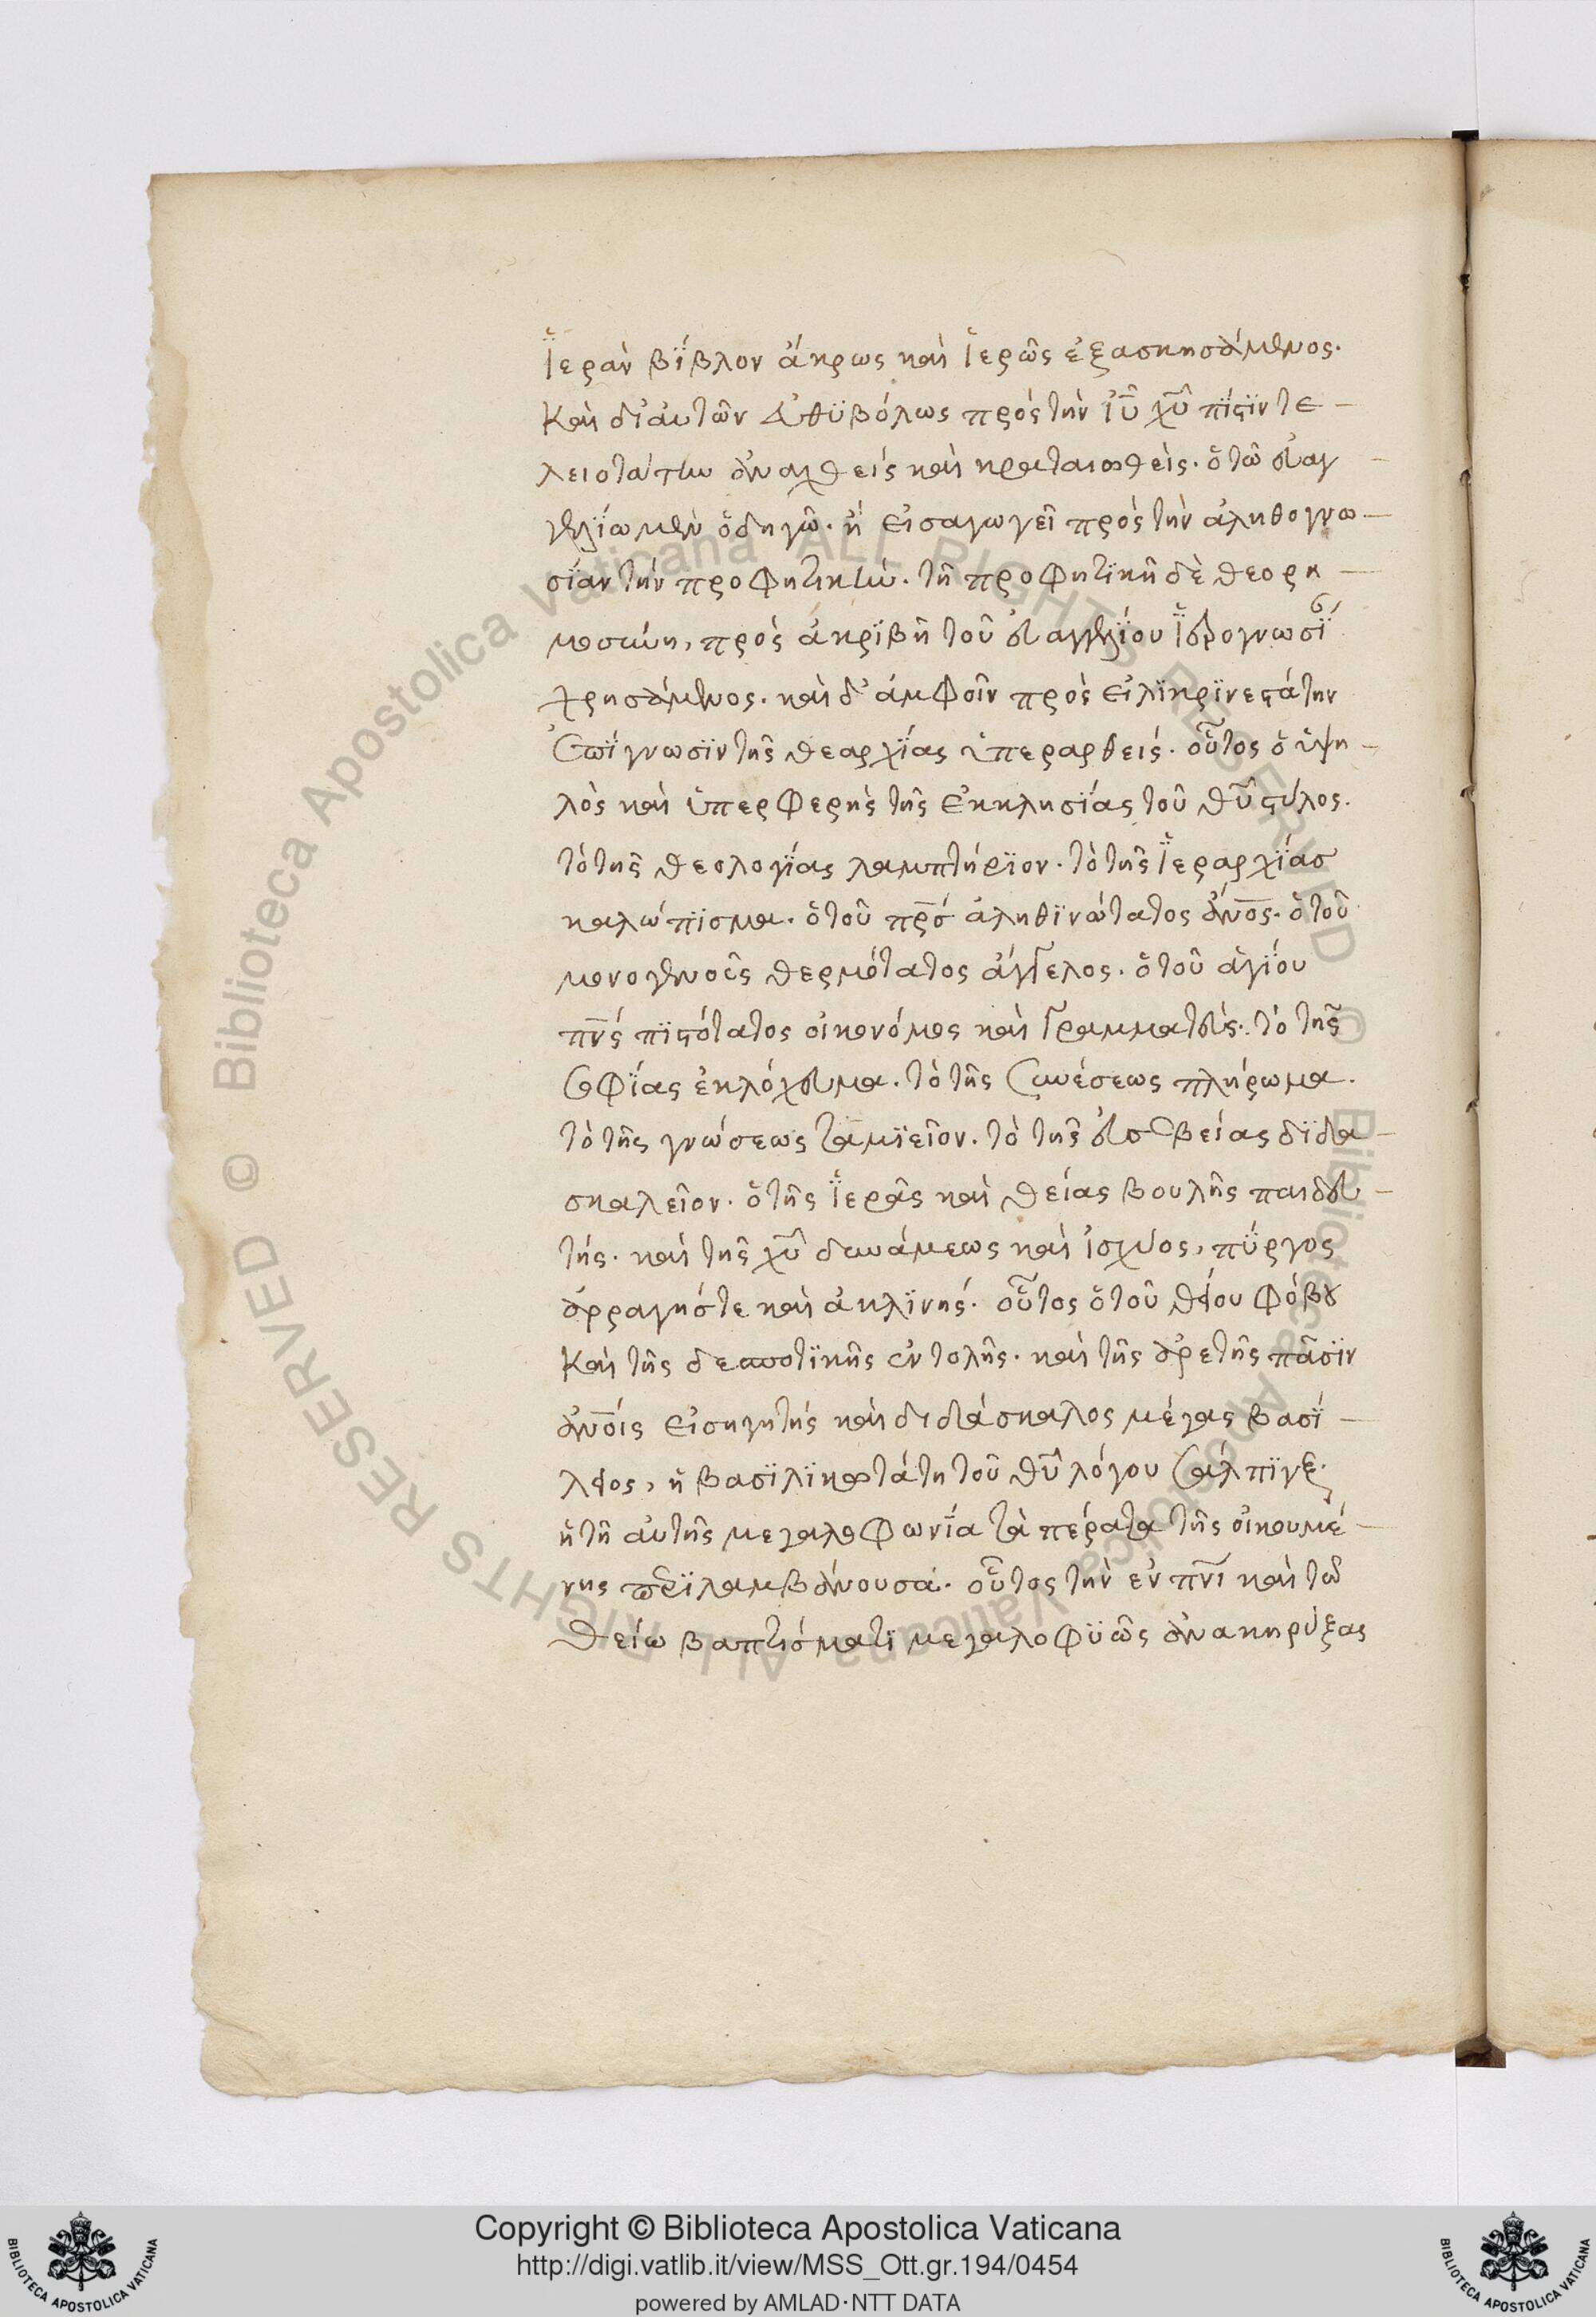 ἱερὰν βΐβλον ἄκρως καὶ ἱερῶς ἐξασκησάμενος.
Καὶ δι' αὐτῶν εὐθϋβόλως πρὸς τὴν ἰῦ χῦ πίστϊν τε
λειοτάτην ἀναχθεὶς καὶ κραταιωθείς. ὁ τῶ εὐαγ
γελΐω μὲν ὁδηγῶ. ἢ εἰσαγωγεῖ πρὸς τὴν ἀληθογνω
σΐαν τὴν προφητικὴν. τῆ προφητϊκῆ δὲ θεορη
μοσύνη, πρὸς ἀκρϊβῆ τοῦ εὐαγγελΐου ἱερογνωσΐ
χρησάμενος. καὶ δ' ἀμφοῖν πρὸς εἰλϊκρϊνεστάτην
ἐπΐγνωσϊν τῆς θεαρχΐας ὑπεραρθείς. οὗτος ὁ ὑψη
λὸς καὶ ὑπερφερὴς τῆς ἐκκλησΐας τοῦ θῦ στύλος.
τὸ τῆς θεολογΐας λαμπτήρϊον. τὸ τῆς ἱεραρχΐασ
καλώπϊσμα. ὁ τοῦ πρσ ἀληθϊνώτατος ἄνος. ὁ τοῦ
μονογενοῦς θερμότατος ἄγγελος. ὁ τοῦ ἁγΐου
πνς πϊστότατος οἰκονόμος καὶ γραμματεὺς. τὸ τῆς
σοφΐας ἐκλόχευμα. τὸ τῆς συνέσεως πλήρωμα.
τὸ τῆς γνώσεως ταμϊεῖον. τὸ τῆς εὐσεβείας δϊδα
σκαλεῖον. ὁ τῆς ἱερᾶς καὶ θείας βουλῆς παιδευ
τής. καὶ τῆς χῦ δυνάμεως καὶ ἰσχύος, πΰργος
ἀρραγής τε καὶ ἀκλϊνής. οὗτος ὁ τοῦ θείου φόβου
Καὶ τῆς δεσποτϊκῆς ἐντολῆς. καὶ τῆς ἀρετῆς πᾶσϊν
ἀνοις εἰσηγητὴς καὶ διδάσκαλος μέγας βασΐ
λειος, ἡ βασϊλϊκωτάτη τοῦ θῦ λόγου σάλπϊγξ.
ἡ τῆ αὐτῆς μεγαλοφωνΐα τὰ πέρατα τῆς οἰκουμέ
νης περϊλαμβάνουσα. οὗτος τὴν ἐν πνϊ καὶ τῶ
θείω βαπτίσματϊ μεγαλοφϋῶς ἀνακηρύξας
Copyright © Biblioteca Apostolica Vaticana
http://digi.vatlib.it/view/MSS_Ott.gr.194/0454
powered by AMLAD·NTT DATA